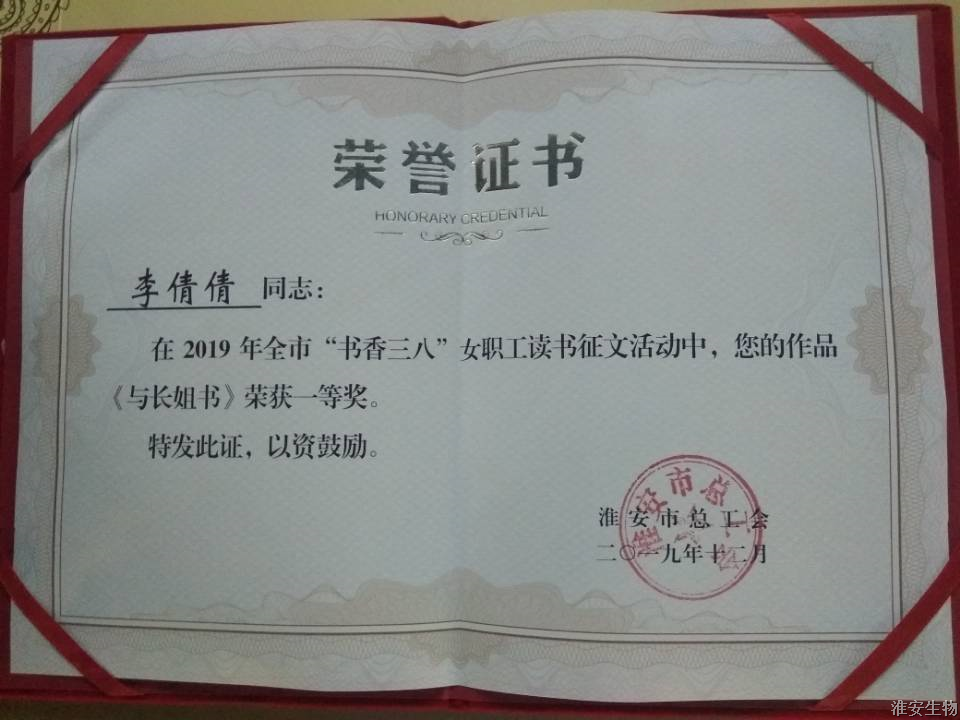 荣誉证书
HONORARY CREDENTIAL
李倩倩 同志：
在 2019 年全市“书香三八”女职工读书征文活动中，您的作品
《与长姐书》荣获一等奖。
特发此证，以资鼓励。
淮安市总工会
二〇一九年十二月
淮安市总工会
淮安生物